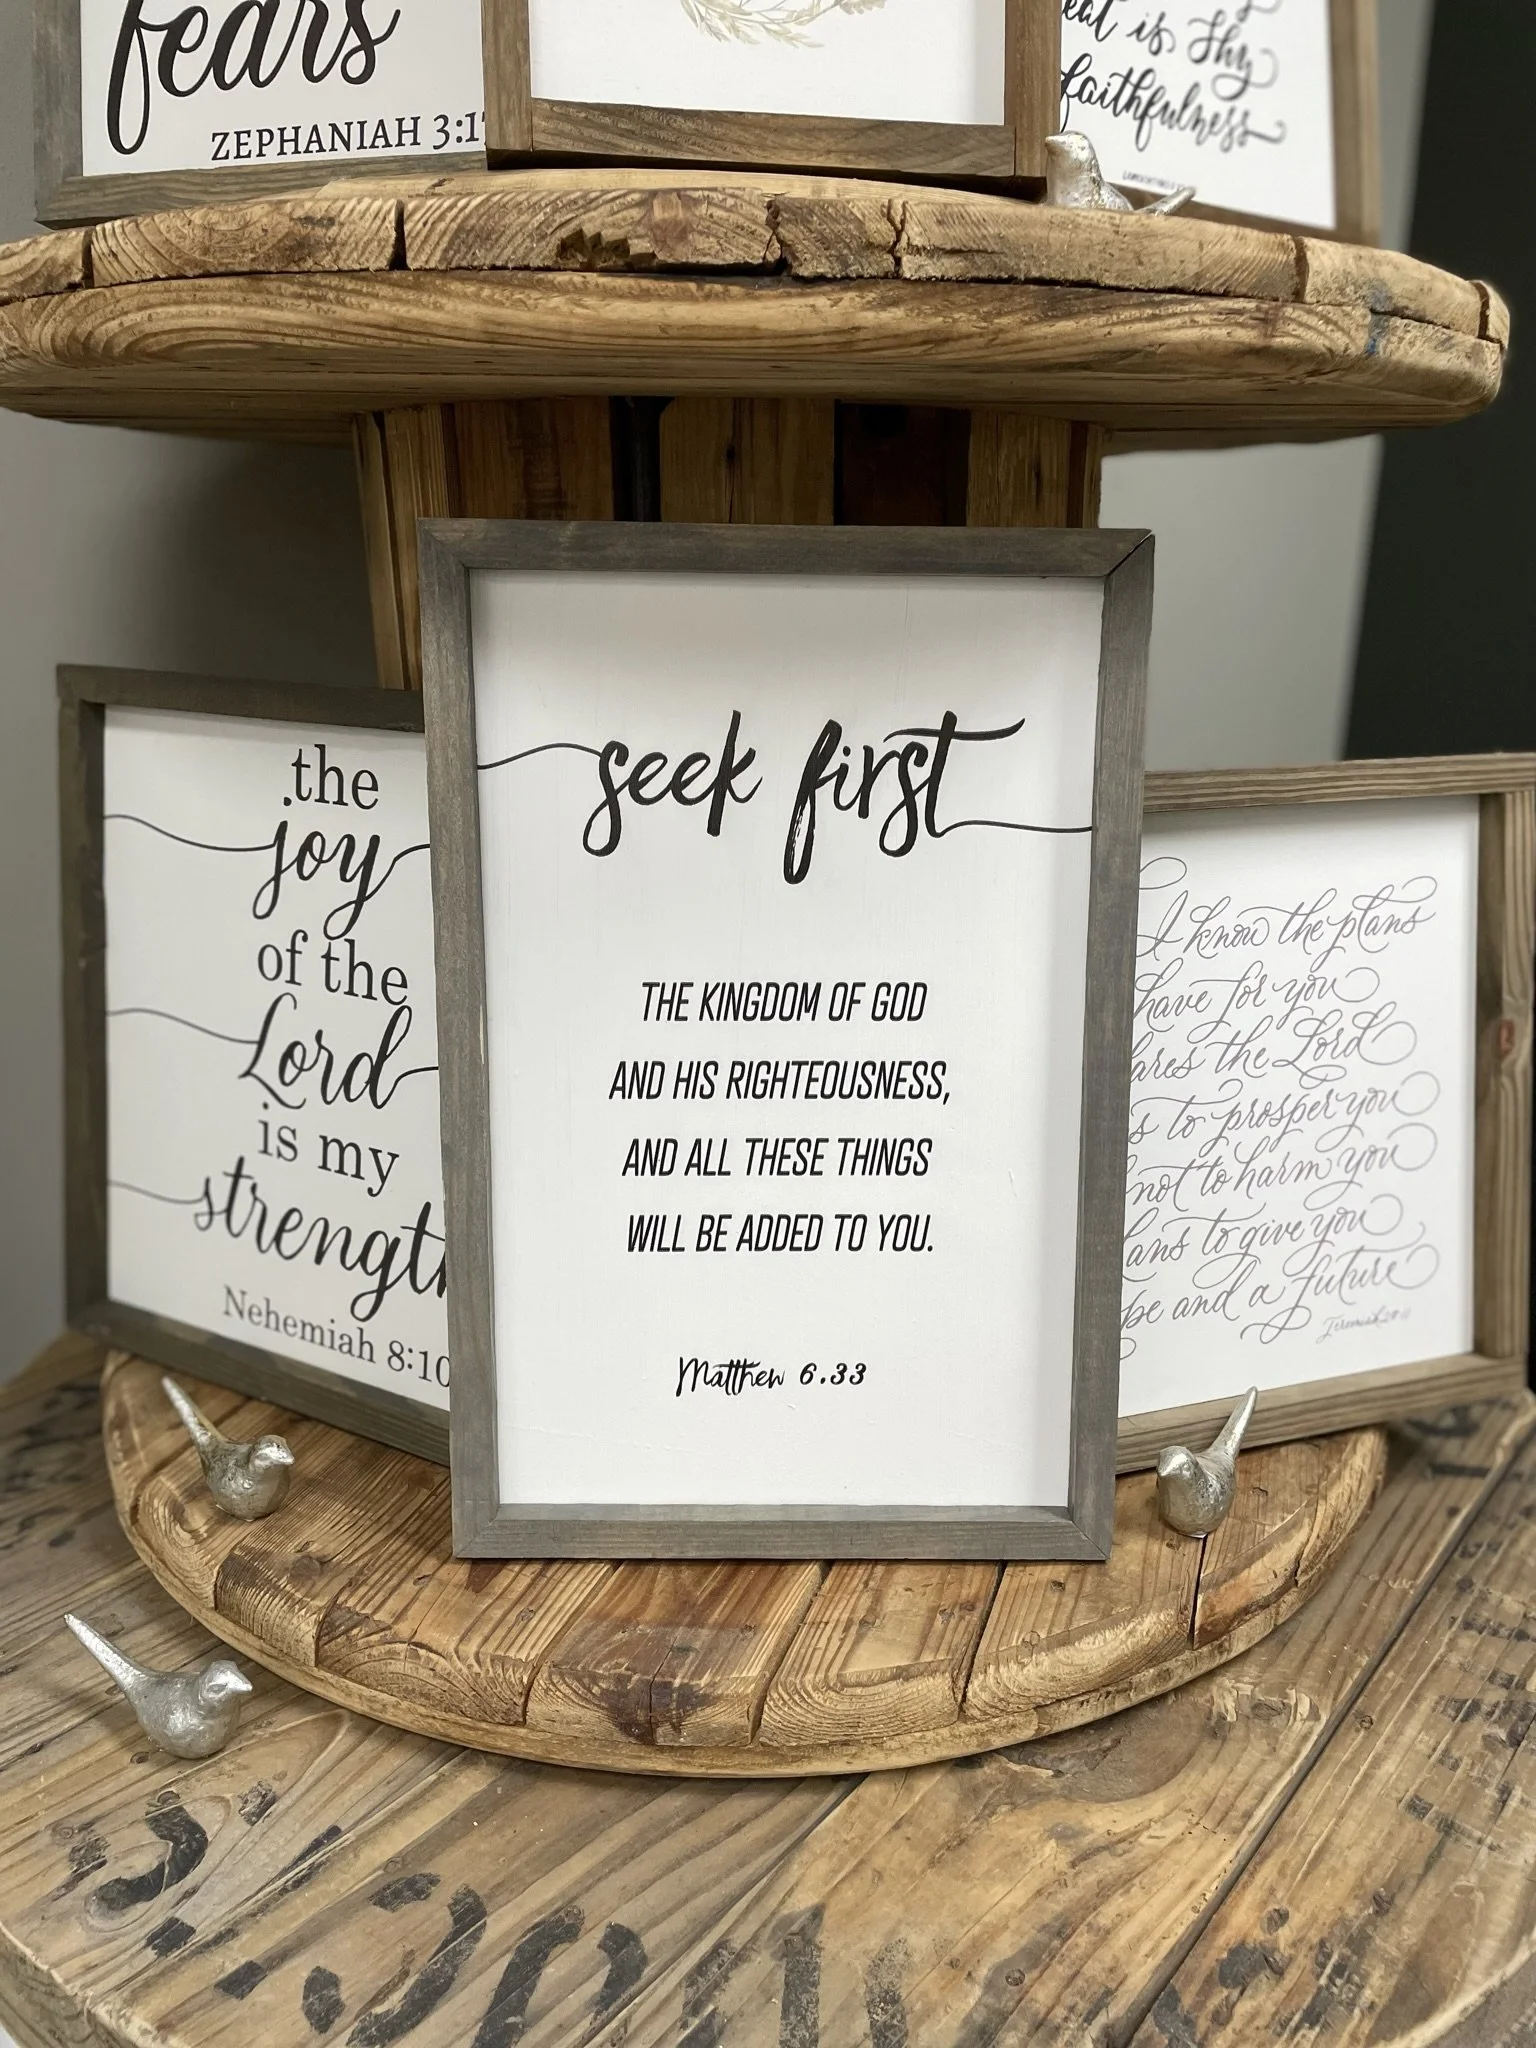 fears
ZEPHANIAH 3:17
is Thy
faithfulness
seek first
THE KINGDOM OF GOD
AND HIS RIGHTEOUSNESS,
AND ALL THESE THINGS
WILL BE ADDED TO YOU.
Matthew 6.33
the
joy
of the
Lord
is my
strength
Nehemiah 8:10
I know the plans
have for you
the Lord
to prosper you
not to harm you
to give you
and a future
Jeremiah 29:11